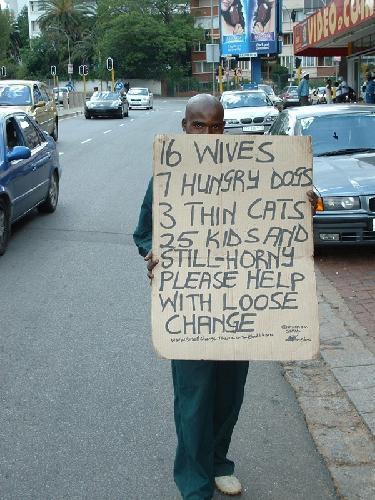 VIDEO.COM
16 WIVES
7 HUNGRY DOGS
3 THIN CATS
25 KIDS AND
STILL-HORNY
PLEASE HELP
WITH LOOSE
CHANGE